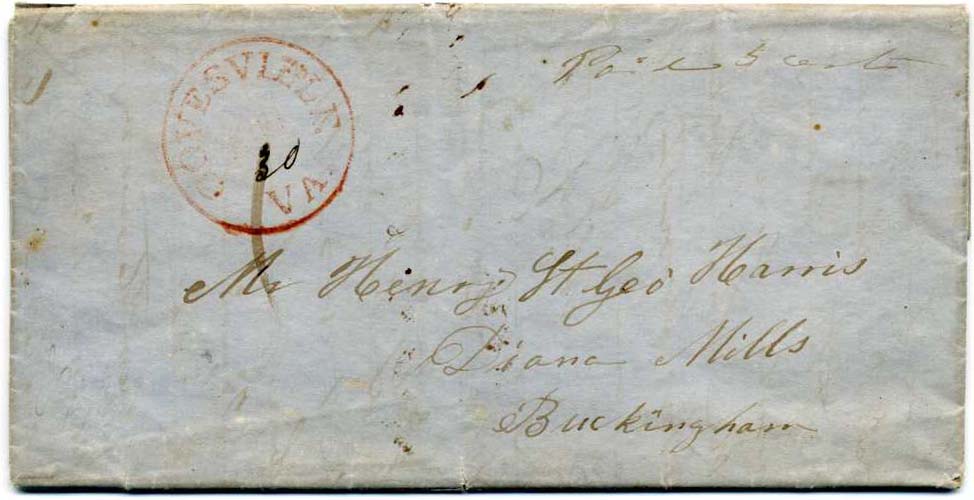 Paid 5 cents
COVESVILLE.
30
VA.
Mr Henry St Geo Harris
Diana Mills
Buckingham